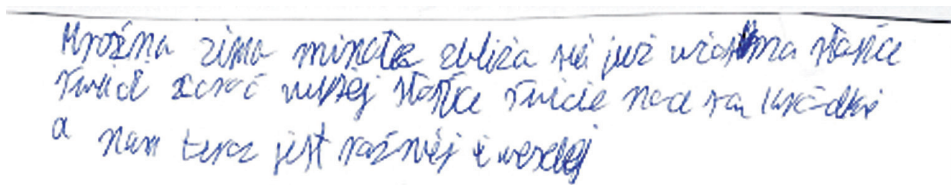 Mroźna zima minęła zbliża się już wiosna słońce
świeci coraz wyżej słońce świcie nad
a nam teraz jest raźniej i weselej